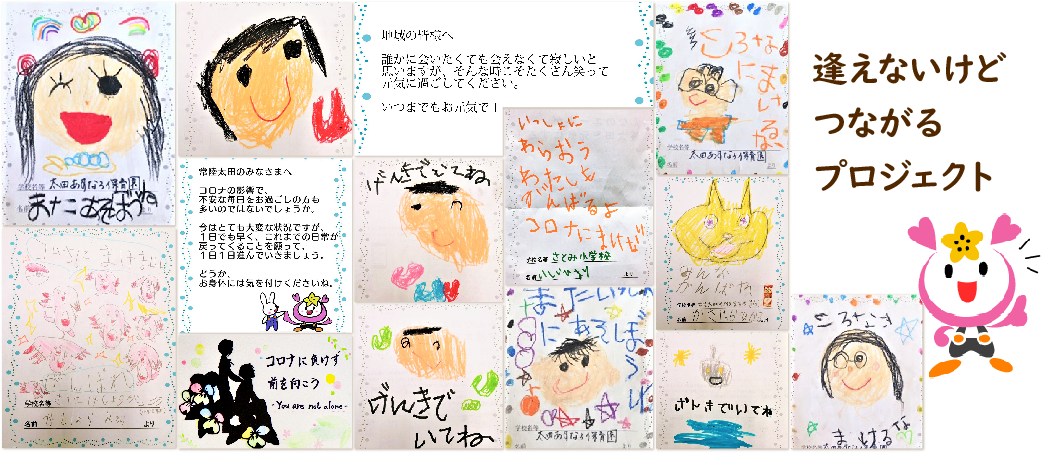 逢えないけど
つながる
プロジェクト
学校名等 太田あすなろ保育園
名前
またあそぼうね
地域の皆様へ
誰かに会いたくても会えなくて寂しいと
思いますが、そんな時こそたくさん笑って
元気に過ごしてください。
いつまでもお元気で!
ころな
に
まけ
るな
学校名等 太田あすなろ保育園
名前
常陸太田のみなさまへ
コロナの影響で、
不安な毎日をお過ごしの方も
多いのではないでしょうか。
今はとても大変な状況ですが、
1日でも早く、これまでの日常が
戻ってくることを願って、
1日1日進んでいきましょう。
どうか、
お身体には気を付けてくださいね。
げんきでいてね
いっしょに
わらおう
わたしも
がんばるよ
コロナにまけずに
学校名等 さとみ小学校
名前 より
みんな
がんばろね
学校名等
名前
学校名等
名前 より
コロナに負けず
前を向こう
-You are not alone-
げんきで
いてね
またいっしょ
にあそぼうね
学校名等 太田あすなろ保育園
名前
げんきでいてね
ころなに
まけるな
学校名等 太田あすなろ保育園